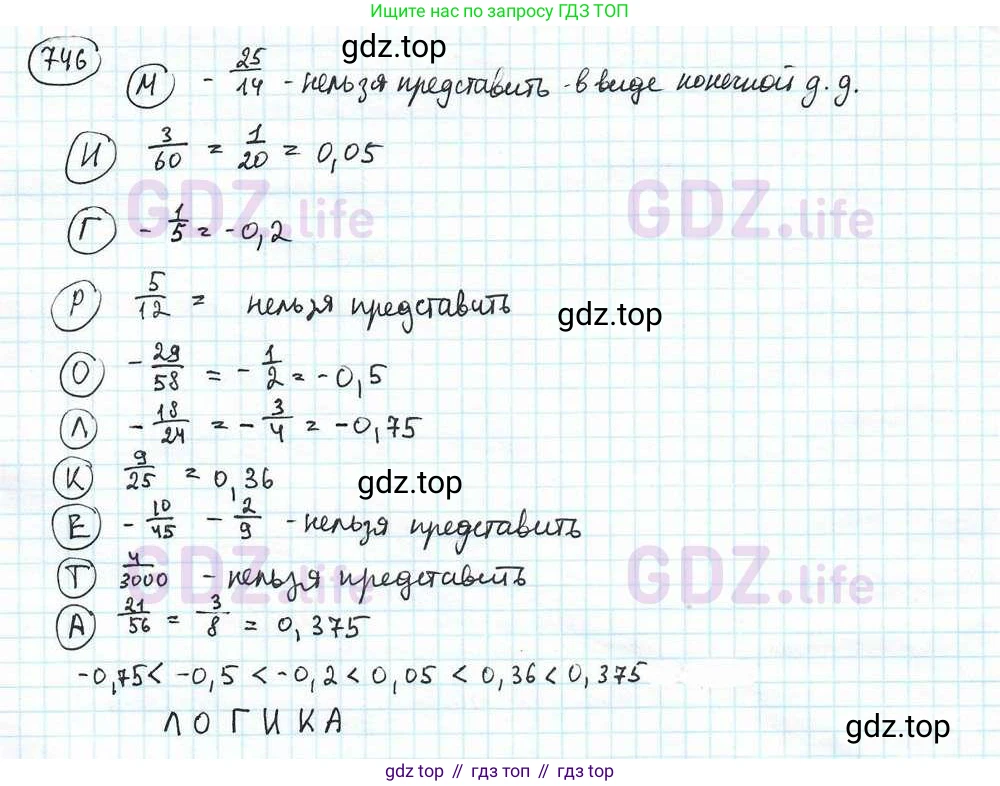 Ищите нас по запросу ГДЗ ТОП
gdz.top
746
М -25/14 - нельзя представить в виде конечной д.д.
И 3/60 = 1/20 = 0,05
GDZ.life GDZ.life
Г -1/5 = -0,2
Р 5/12 = нельзя представить
gdz.top
О -29/58 = -1/2 = -0,5
Л -18/24 = -3/4 = -0,75
К 9/25 = 0,36
gdz.top
Е -10/45 -2/9 - нельзя представить
Т 4/3000 - нельзя представить
GDZ.life GDZ.life
А 21/56 = 3/8 = 0,375
-0,75 < -0,5 < -0,2 < 0,05 < 0,36 < 0,375
ЛОГИКА
gdz.top
gdz top // гдз топ // gdz top